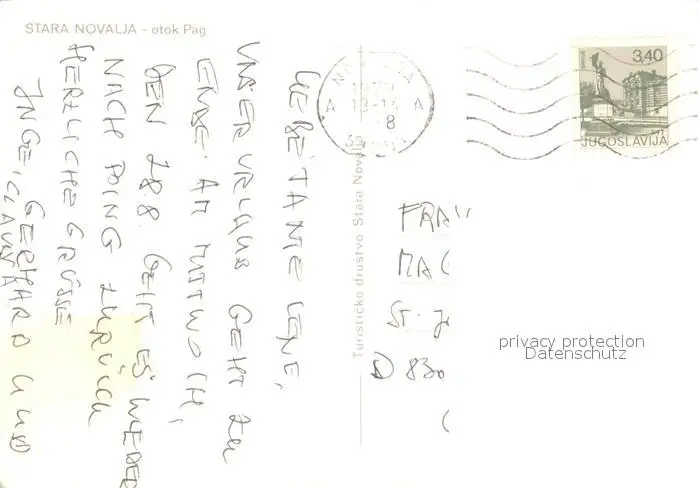 STARA NOVALJA - otok Pag
LIEBE TANTE LENE,
UNSER URLAUB GEHT ZU
ENDE. AM MITTWOCH,
DEN 28.8. GEHT ES WIEDER
NACH DING ZURÜCK
HERZLICHE GRÜSSE
GERHARD UND
INGE, CLAUDIA
Turističko društvo Stara Novalja
A A
8
3,40
JUGOSLAVIJA
FRAU
MA
St. J
D 830
privacy protection
Datenschutz